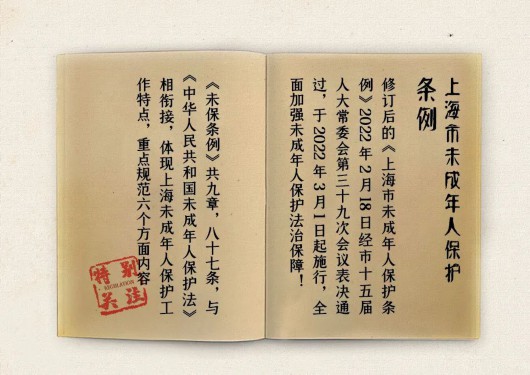 上海市未成年人保护
条例
修订后的《上海市未成年人保护条
例》2022年2月18日经市十五届
人大常委会第三十九次会议表决通
过，于2022年3月1日起施行，全
面加强未成年人保护法治保障！
《未保条例》共九章，八十七条，与
《中华人民共和国未成年人保护法》
相衔接，体现上海未成年人保护工
作特点，重点规范六个方面内容
特别
LEGISLATION
关注